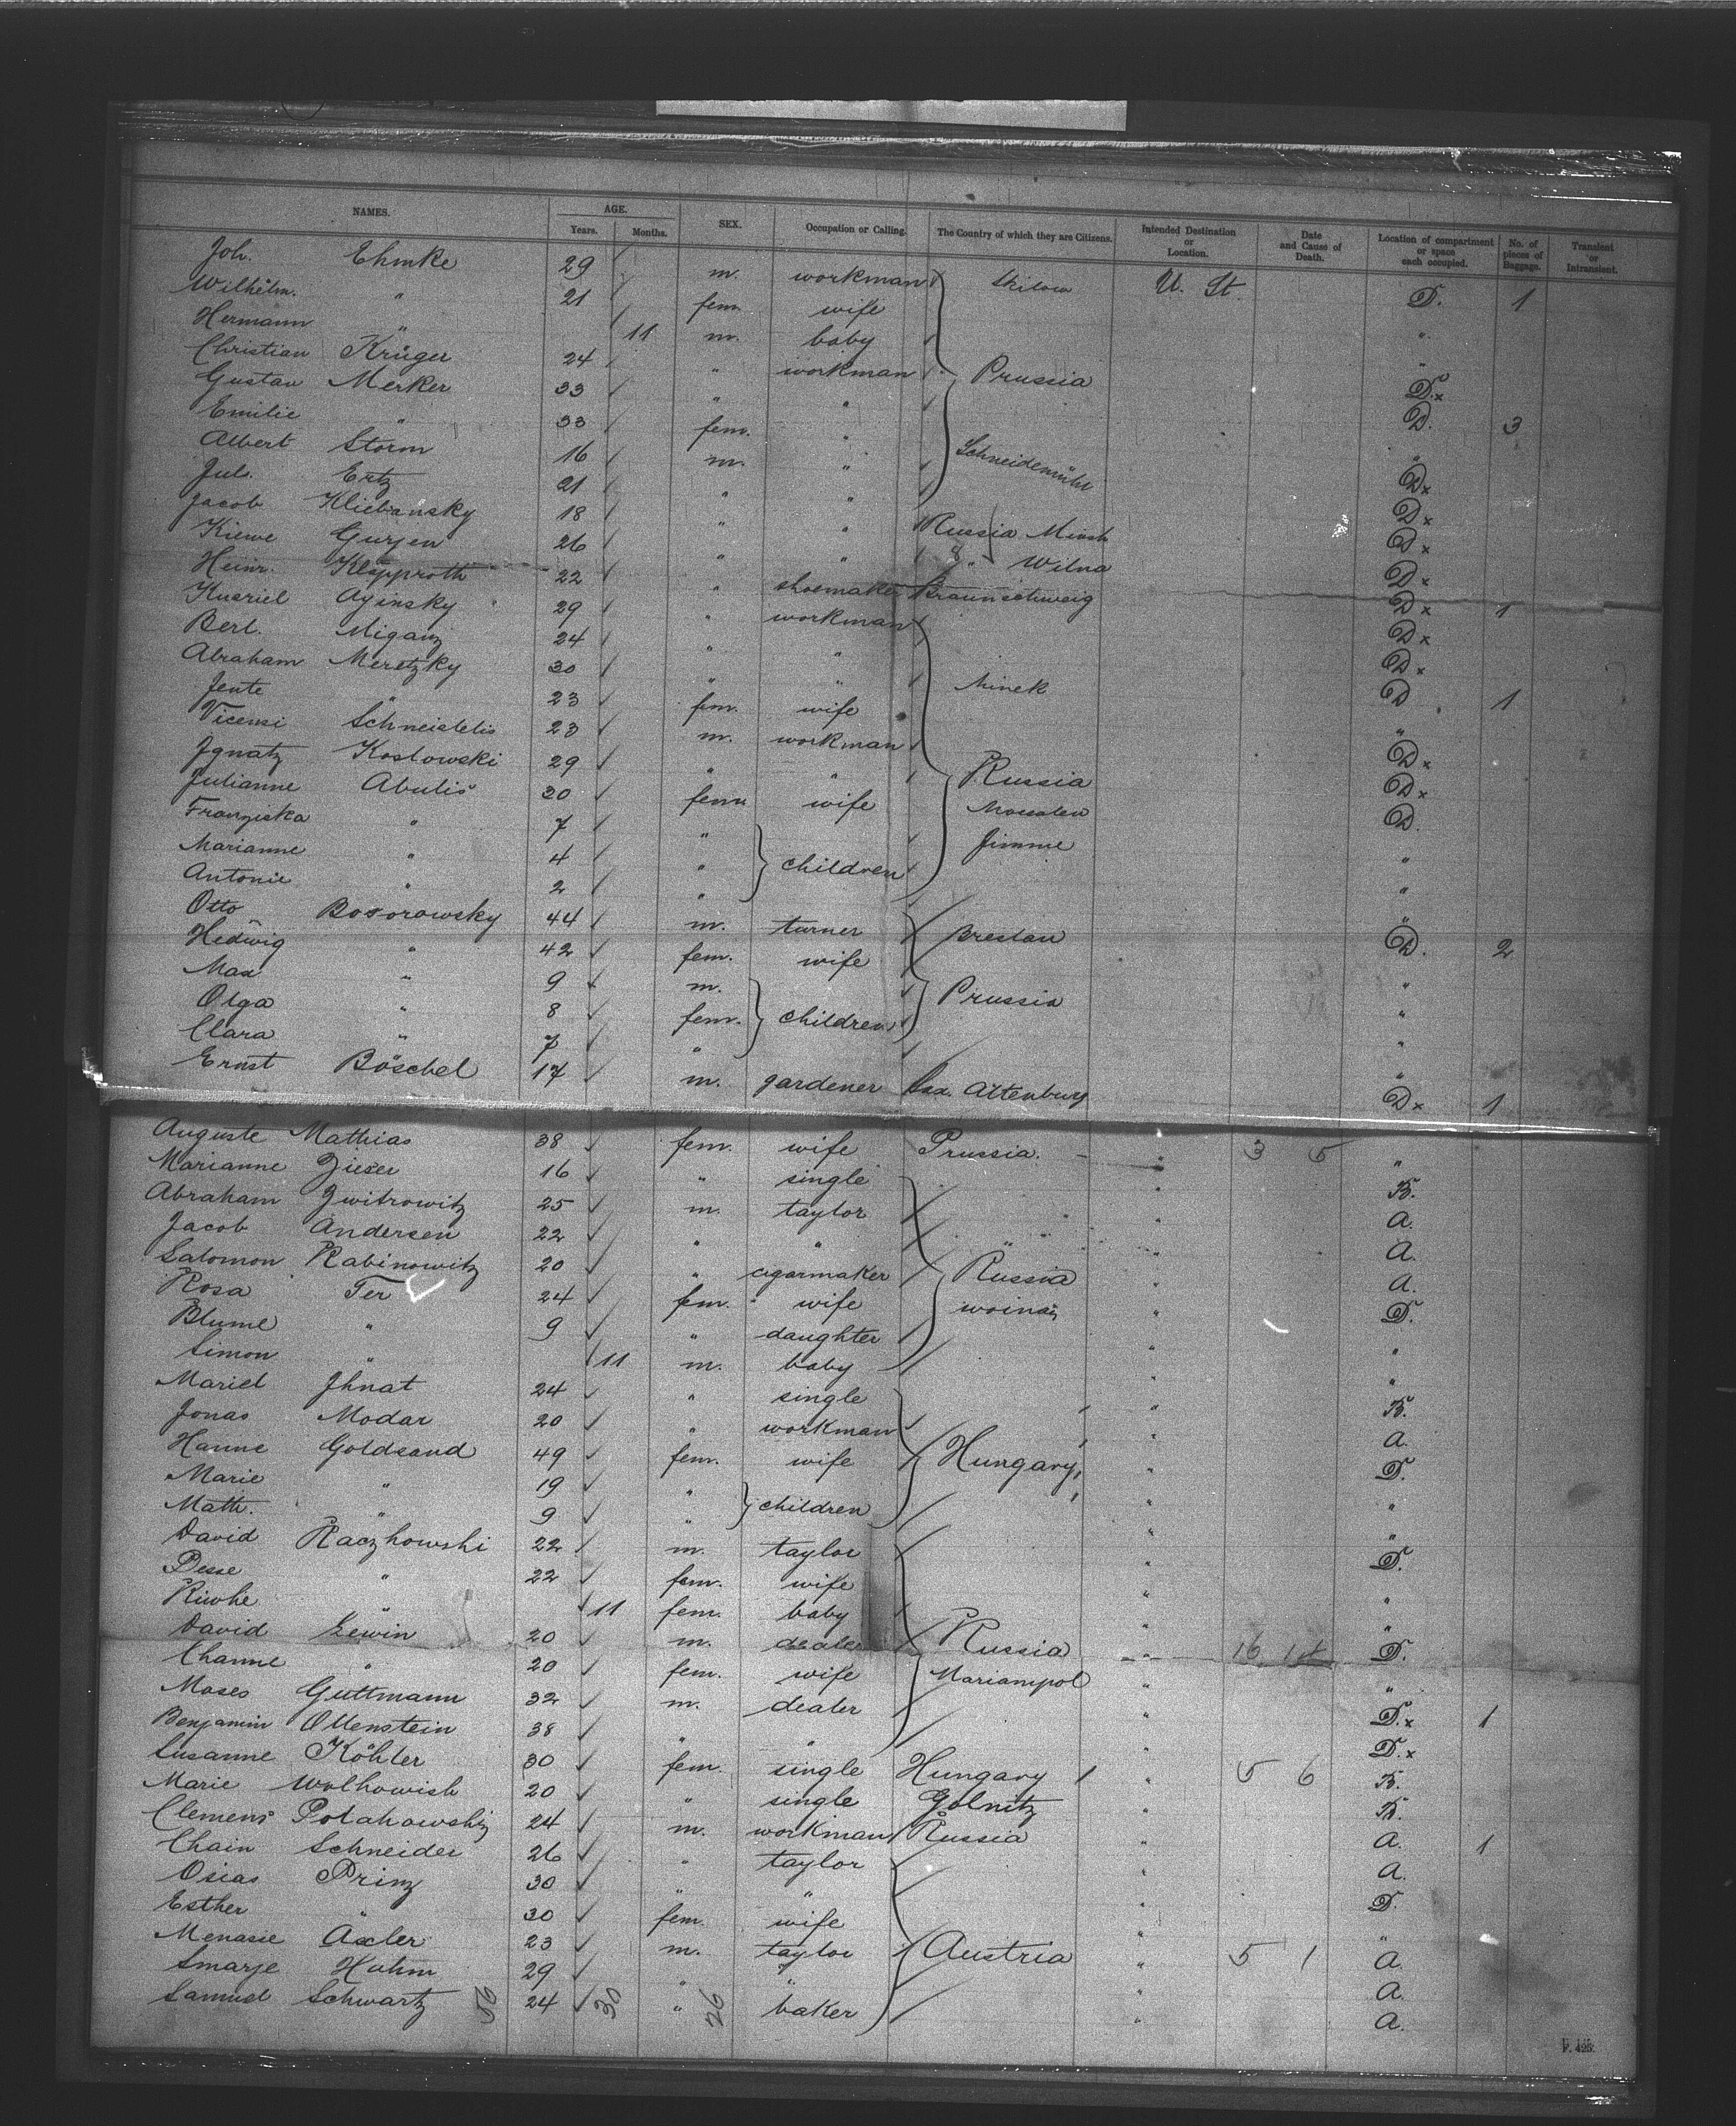 NAMES. AGE. SEX. Occupation or Calling. The Country of which they are Citizens. Intended Destination or Location. Date and Cause of Death. Location of compartment or space each occupied. No. of pieces of Baggage. Transient or Intransient.
Years. Months.
Joh. Ehmke 29 m. workman U. St. D. 1
Wilhelm. " 21 fem. wife "
Hermann " 11 m. baby "
Christian Krüger 24 " workman Prussia D.x
Gustav Merker 33 " " D. 3
Emilie " 33 fem. " "
Albert Storm 16 m. " Schneidemühl Dx
Jul. Ertz 21 " " Dx
Jacob Kliebansky 18 " " Russia Minsk Dx
Kiewe Gurjen 26 " " " Wilna Dx
Heinr. Klapproth 22 " shoemaker Braunschweig Dx 1
Kusriel Aginsky 29 " workman Dx
Berl. Miganz 24 " " Dx
Abraham Meretzky 30 " " Minsk D 1
Jente " 23 fem. wife "
Vicensi Schneistelis 23 m. workman Dx
Ignatz Koslowski 29 " " Russia Dx
Julianne Abulis 30 fem. wife D.
Franziska " 7 " "
Marianne " 4 " children "
Antonie " 2 " "
Otto Bosorowsky 44 m. turner Breslau D. 2
Hedwig " 42 fem. wife "
Max " 9 m. Prussia "
Olga " 8 fem. children "
Clara " 7 " "
Ernst Böschel 17 m. gardener Sax. Altenburg Dx 1
Auguste Mathias 38 fem. wife Prussia. " 3 5 "
Marianne Zieser 16 " single " B.
Abraham Zwitrowitz 25 m. taylor " A.
Jacob Andersen 22 " " " A.
Salomon Rabinowitz 20 " cigarmaker Russia " A.
Rosa Fer 24 fem. wife " D.
Blume " 9 " daughter " "
Simon " 11 m. baby " "
Mariel Ihnat 24 " single " B.
Jonas Modar 20 " workman " A.
Hanne Goldsand 49 fem. wife Hungary " D.
Marie " 19 " children " "
Math. " 9 " " "
David Raczkowski 22 m. taylor " D.
Pesse " 22 fem. wife " "
Riwke " 11 fem. baby " "
David Lewin 20 m. dealer Russia " 16 1st D.
Channe " 20 fem. wife Mariampol " "
Moses Guttmann 32 m. dealer " D.x 1
Benjamin Ottenstein 38 " " " D.x
Susanne Köhler 30 fem. single Hungary " 5 6 B.
Marie Wolhowich 20 " single Golnitz " B.
Clemens 24 m. workman Russia " A. 1
Chain Schneider 26 " taylor " A.
Osias Prinz 30 " " " D.
Esther " 30 fem. wife " "
Menasie Axler 23 m. taylor Austria " 5 1 A.
Smarje Huhm 29 " " " A.
Samuel Schwartz 56 24 30 " 26 baker " A.